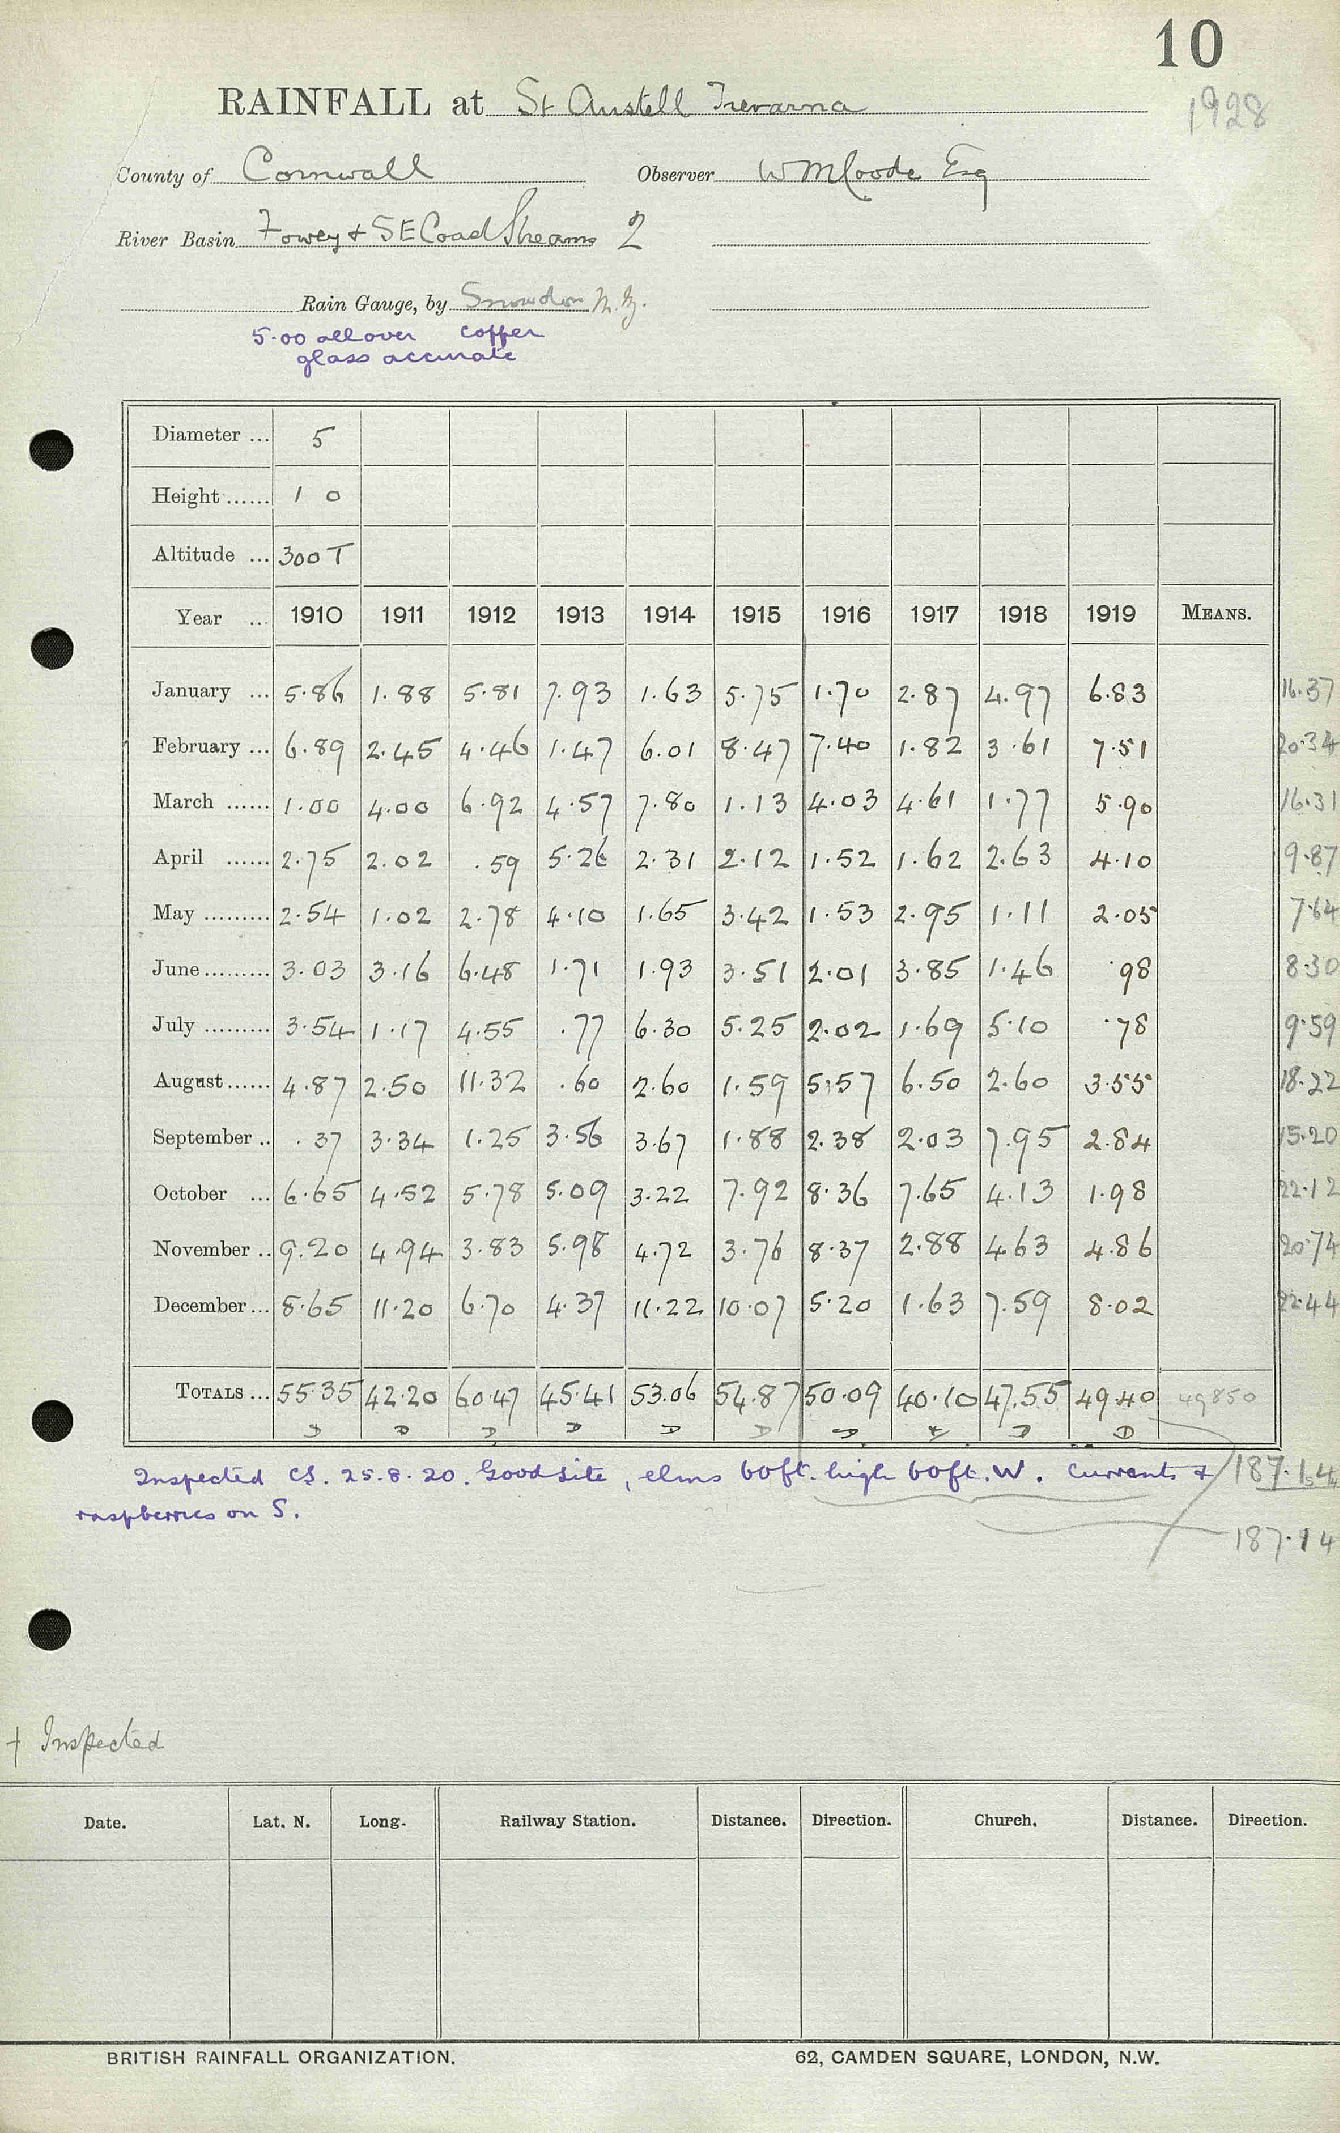 10
RAINFALL at St Austell Trevarna
1928
County of Cornwall Observer W M Coode Esq
River Basin Fowey + SE Coast Streams 2
Rain Gauge, by Snowdon
5.00 all over copper
glass accurate
Diameter ... 5
Height ...... 1 0
Altitude ... 300 T
Year .. 1910 1911 1912 1913 1914 1915 1916 1917 1918 1919 MEANS.
January ... 5.86 1.88 5.81 7.93 1.63 5.75 1.70 2.87 4.97 6.83 16.37
February ... 6.89 2.45 4.46 1.47 6.01 8.47 7.40 1.82 3.61 7.51 20.34
March ...... 1.00 4.00 6.92 4.57 7.80 1.13 4.03 4.61 1.77 5.90 16.31
April ...... 2.75 2.02 .59 5.26 2.31 2.12 1.52 1.62 2.63 4.10 9.87
May ......... 2.54 1.02 2.78 4.10 1.65 3.42 1.53 2.95 1.11 2.05 7.64
June ......... 3.03 3.16 6.48 1.71 1.93 3.51 2.01 3.85 1.46 .98 8.30
July ......... 3.54 1.17 4.55 .77 6.30 5.25 2.02 1.69 5.10 .78 9.59
August ...... 4.87 2.50 11.32 .60 2.60 1.59 5.57 6.50 2.60 3.55 18.22
September .. .37 3.34 1.25 3.56 3.67 1.88 2.38 2.03 7.95 2.84 15.20
October ... 6.65 4.52 5.78 5.09 3.22 7.92 8.36 7.65 4.13 1.98 22.12
November .. 9.20 4.94 3.83 5.98 4.72 3.76 8.37 2.88 4.63 4.86 20.74
December ... 8.65 11.20 6.70 4.37 11.22 10.07 5.20 1.63 7.59 8.02 22.44
TOTALS ... 55.35 42.20 60.47 45.41 53.06 54.87 50.09 40.10 47.55 49.40 49850
Inspected CS. 25.8.20. Good site, elms 60ft. high 60ft. W. Currants + 187.14
raspberries on S.
187.14
+ Inspected
Date. Lat. N. Long. Railway Station. Distance. Direction. Church. Distance. Direction.
BRITISH RAINFALL ORGANIZATION. 62, CAMDEN SQUARE, LONDON, N.W.